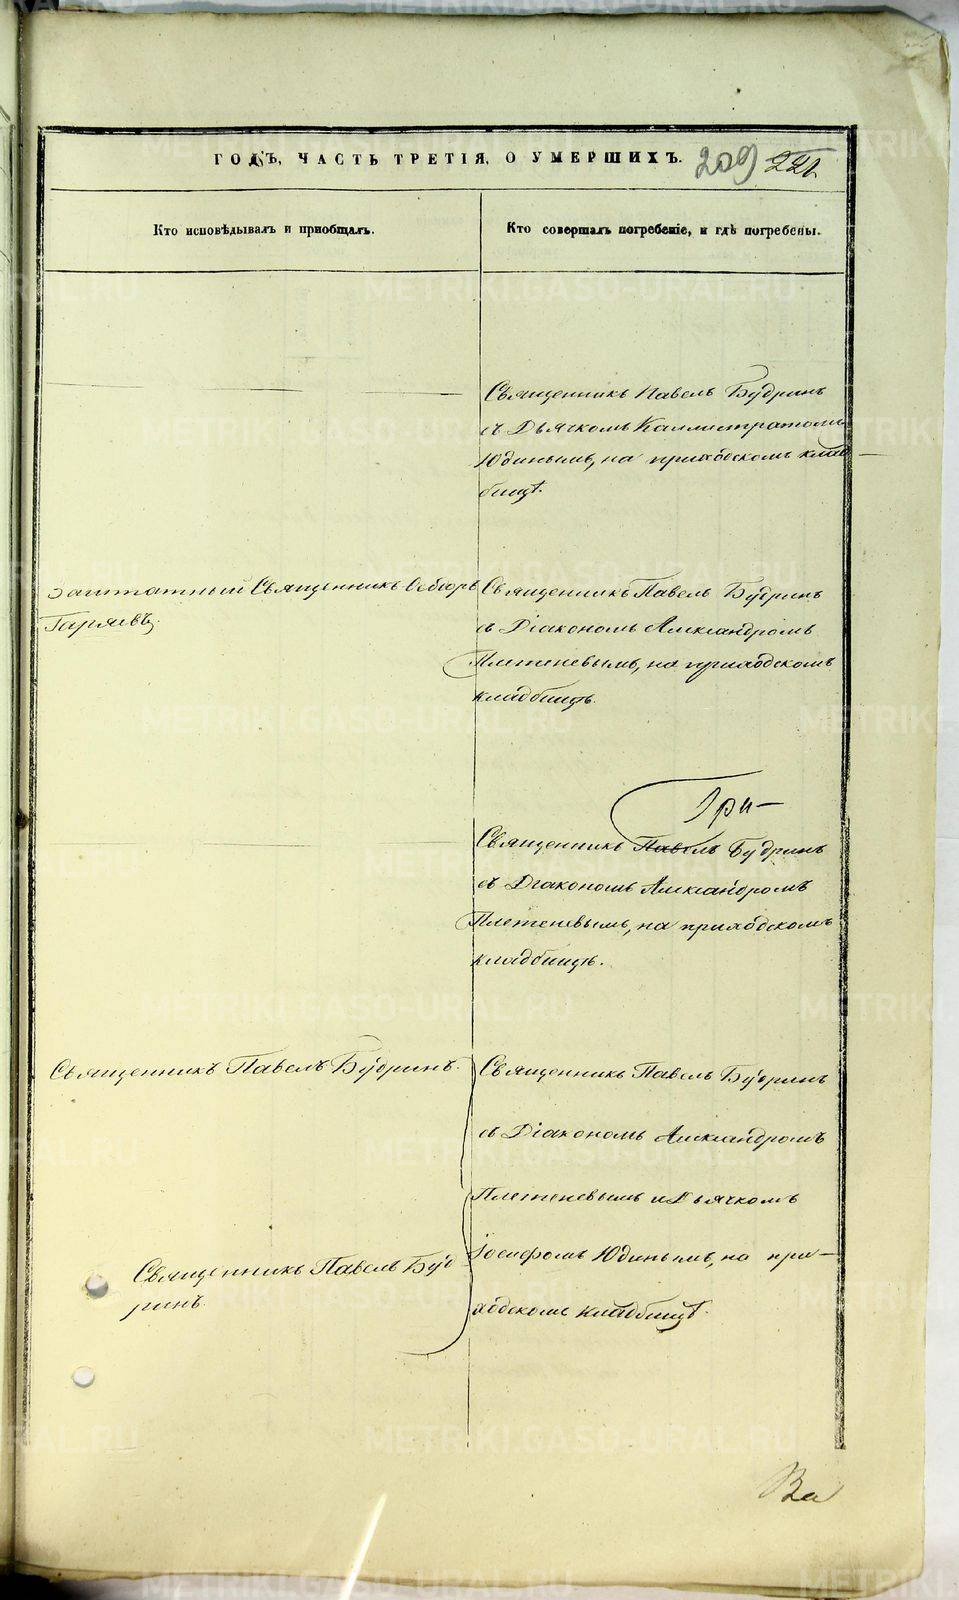 ГОДЪ, ЧАСТЬ ТРЕТІЯ, О УМЕРШИХЪ. 209
Кто исповѣдывалъ и пріобщалъ.
Кто совершалъ погребеніе, и гдѣ погребены.
Священникъ Павелъ Будринъ
съ Дьячкомъ Каллистратомъ
Юдинымъ, на приходскомъ клад
бищѣ.
Заштатный Священникъ Ѳедоръ
Гаряевъ.
Священникъ Павелъ Будринъ
съ Діакономъ Александромъ
Плетеневымъ, на приходскомъ
кладбищѣ.
Гри-
Священникъ Павелъ Будринъ
съ Діакономъ Александромъ
Плетеневымъ, на приходскомъ
кладбищѣ.
Священникъ Павелъ Будринъ.
Священникъ Павелъ Буд
ринъ.
Священникъ Павелъ Будринъ
съ Діакономъ Александромъ
Плетеневымъ и Дьячкомъ
Іосифомъ Юдинымъ, на при-
ходскомъ кладбищѣ.
За
METRIKI.GASO-URAL.RU